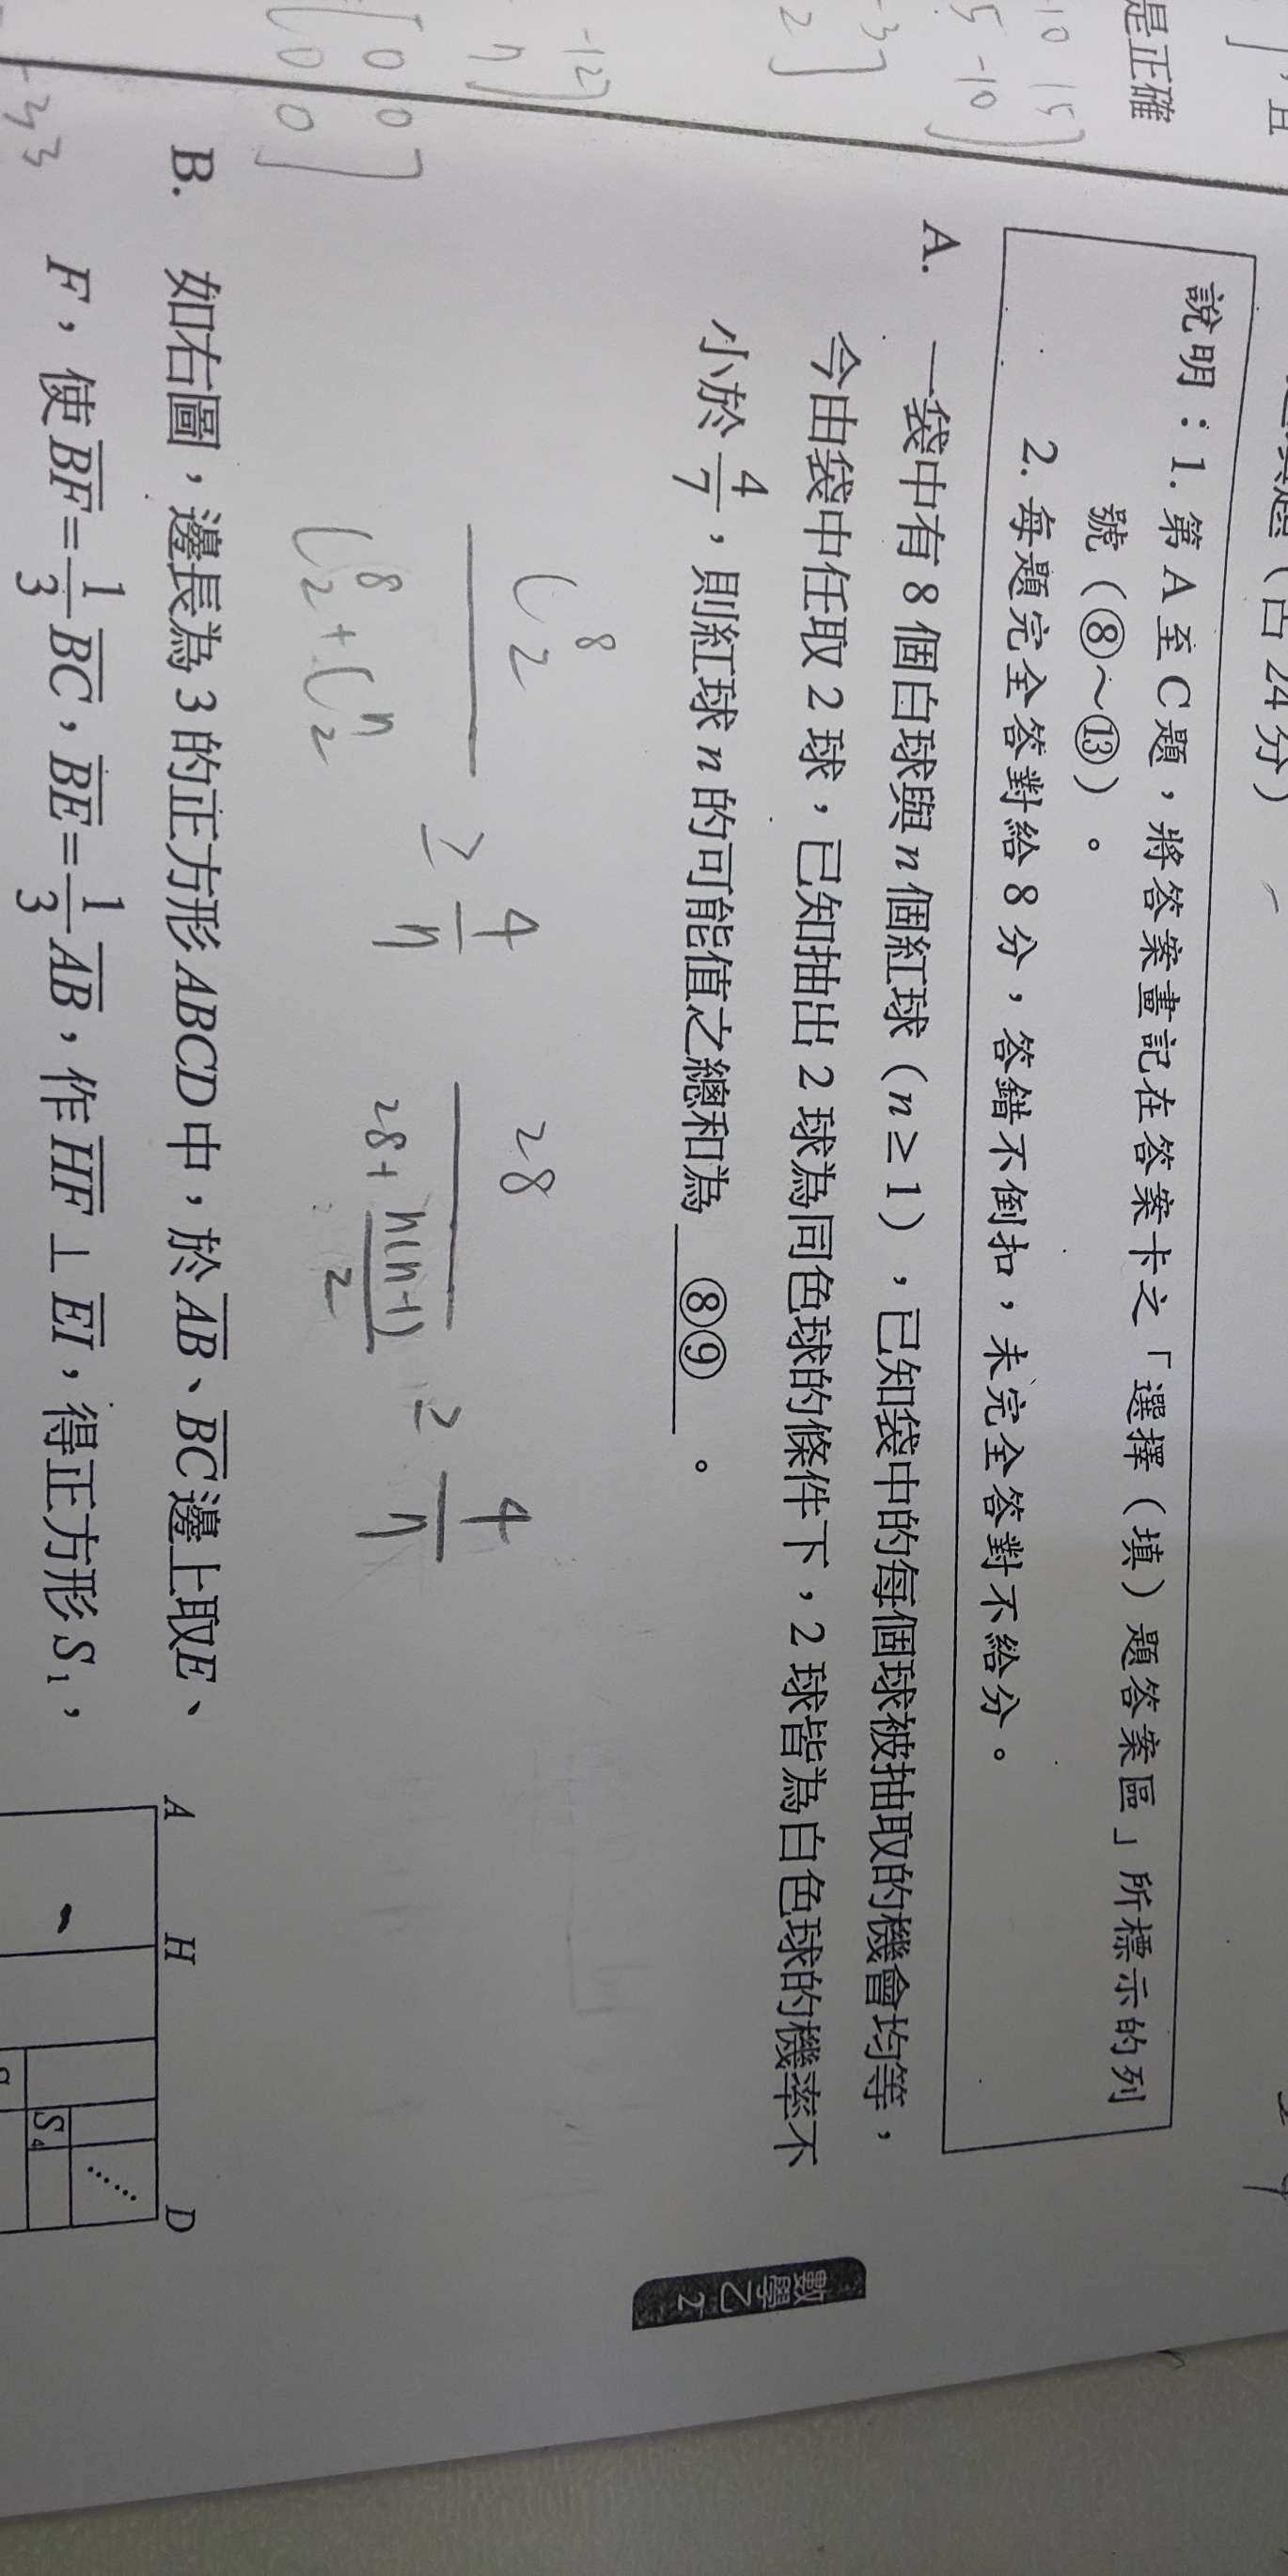 是正確
10 15
5 -10
-3
2
-12
0 0
0 0
-3 3
說明：1. 第 A 至 C 題，將答案畫記在答案卡之「選擇（填）題答案區」所標示的列
號（⑧～⑬）。
2. 每題完全答對給 8 分，答錯不倒扣，未完全答對不給分。
A. 一袋中有 8 個白球與 n 個紅球（n ≥ 1），已知袋中的每個球被抽取的機會均等，
今由袋中任取 2 球，已知抽出 2 球為同色球的條件下，2 球皆為白色球的機率不
小於 4/7，則紅球 n 的可能值之總和為 ⑧⑨ 。
C⁸₂ / (C⁸₂ + Cⁿ₂) ≥ 4/7 28 / (28 + n(n-1)/2) ≥ 4/7
B. 如右圖，邊長為 3 的正方形 ABCD 中，於 A̅B̅、B̅C̅ 邊上取 E、
F，使 B̅F̅ = 1/3 B̅C̅，B̅E̅ = 1/3 A̅B̅，作 H̅F̅ ⊥ E̅I̅，得正方形 S₁，
A H D
S₄ ……
數學乙 2